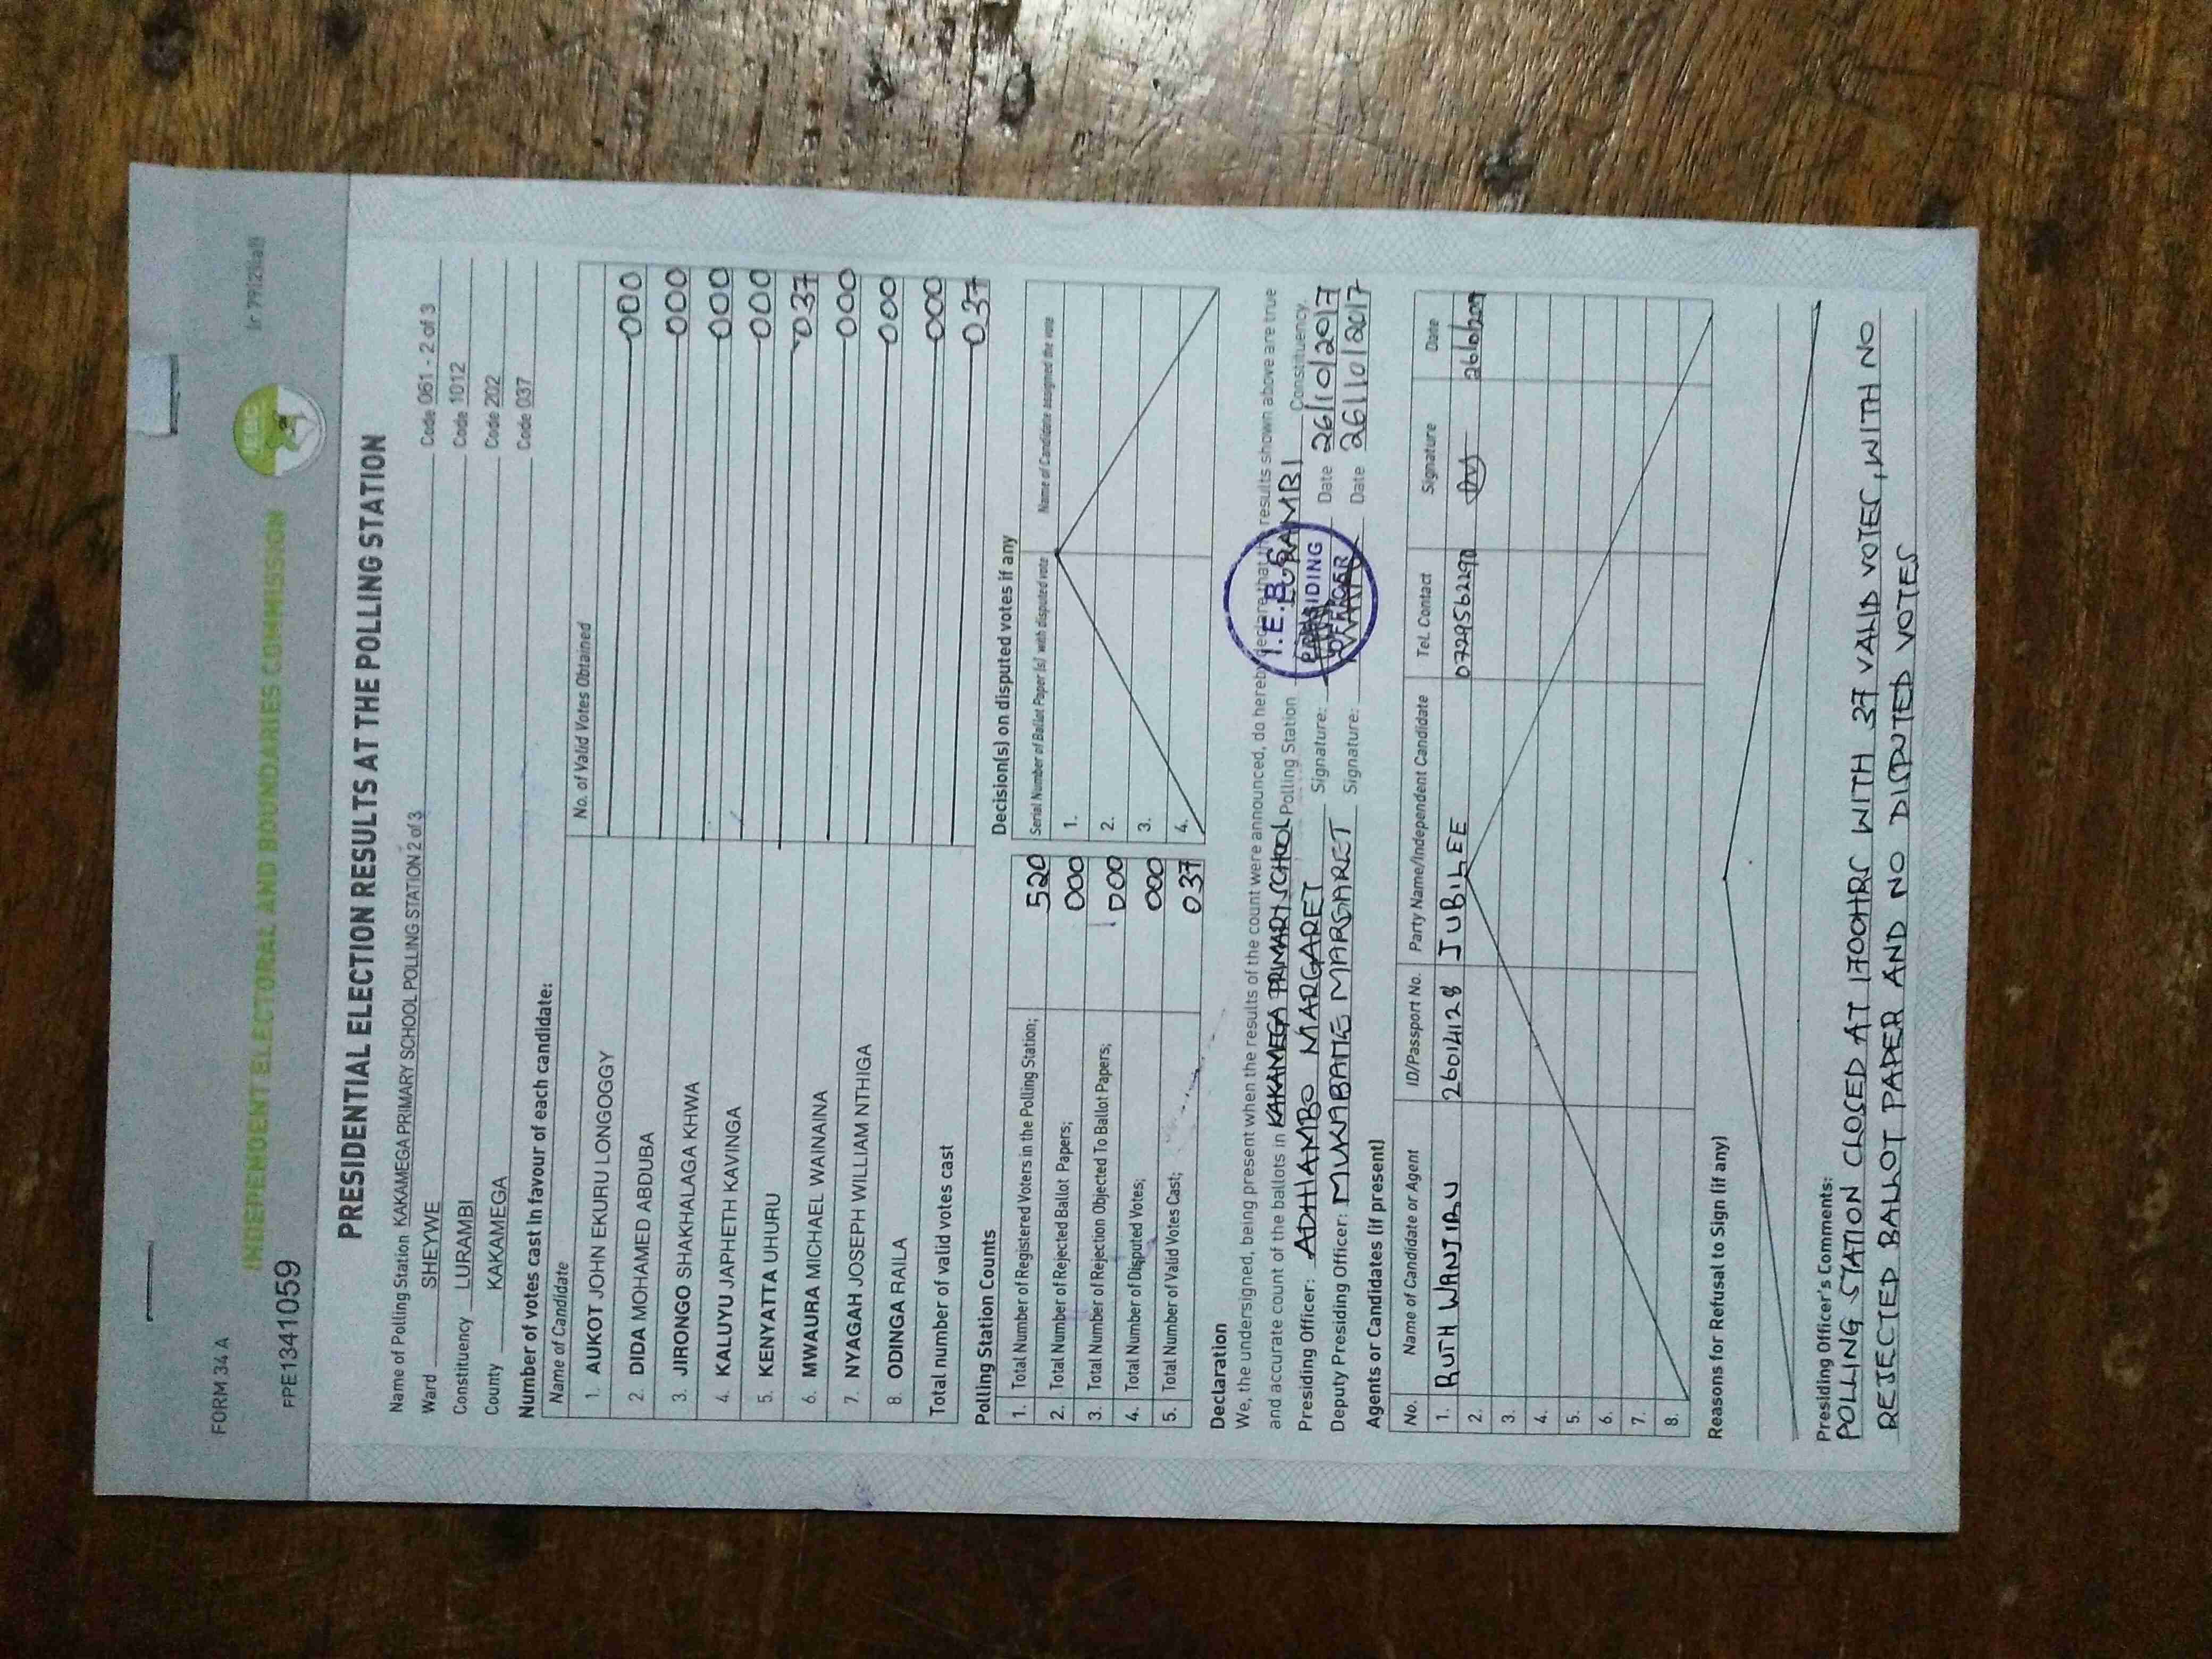 FORM 34 A
INDEPENDENT ELECTORAL AND BOUNDARIES COMMISSION
IEBC
FPE1341059
PRESIDENTIAL ELECTION RESULTS AT THE POLLING STATION
Name of Polling Station KAKAMEGA PRIMARY SCHOOL POLLING STATION 2 of 3 Code 061 - 2 of 3
Ward SHEYWE Code 1012
Constituency LURAMBI Code 202
County KAKAMEGA Code 037
Number of votes cast in favour of each candidate:
Name of Candidate No. of Valid Votes Obtained
1. AUKOT JOHN EKURU LONGOGGY 000
2. DIDA MOHAMED ABDUBA 000
3. JIRONGO SHAKHALAGA KHWA 000
4. KALUYU JAPHETH KAVINGA 000
5. KENYATTA UHURU 037
6. MWAURA MICHAEL WAINAINA 000
7. NYAGAH JOSEPH WILLIAM NTHIGA 000
8. ODINGA RAILA 000
Total number of valid votes cast 037
Polling Station Counts
1. Total Number of Registered Voters in the Polling Station; 520
2. Total Number of Rejected Ballot Papers; 000
3. Total Number of Rejection Objected To Ballot Papers; 000
4. Total Number of Disputed Votes; 000
5. Total Number of Valid Votes Cast; 037
Decision(s) on disputed votes if any
Serial Number of Ballot Paper (s) with disputed vote Name of Candidate assigned the vote
1.
2.
3.
4.
Declaration
We, the undersigned, being present when the results of the count were announced, do hereby declare that the results shown above are true
and accurate count of the ballots in KAKAMEGA PRIMARY SCHOOL Polling Station LURAMBI Constituency.
Presiding Officer: ADHIAMBO MARGARET Signature: Date 26/10/2017
Deputy Presiding Officer: MUKABATIE MARGARET Signature: Date 26/10/2017
I.E.B.C
PRESIDING
OFFICER
Agents or Candidates (if present)
No. Name of Candidate or Agent ID/Passport No. Party Name/Independent Candidate Tel. Contact Signature Date
1. RUTH WANJIRU 26014128 JUBILEE 0729562290
2.
3.
4.
5.
6.
7.
8.
Reasons for Refusal to Sign (if any)
Presiding Officer's Comments:
POLLING STATION CLOSED AT 1700HRS WITH 37 VALID VOTES, WITH NO
REJECTED BALLOT PAPER AND NO DISPUTED VOTES